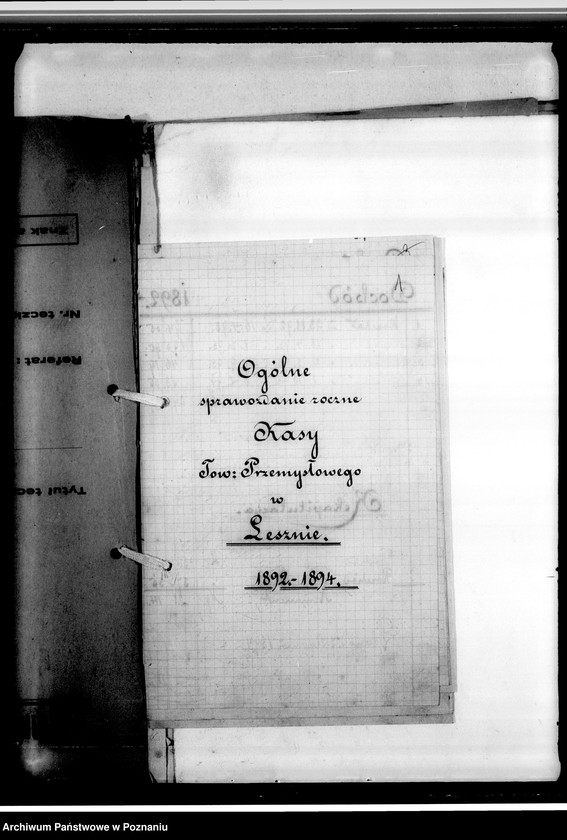 1
Ogólne
sprawozdanie roczne
Kasy
Tow: Przemysłowego
w
Lesznie.
1892.-1894.
Dochód 1892.
Rekapitulacia.
Znak a
Nr. teczk
Referat :
Tytuł tecz
Archiwum Państwowe w Poznaniu